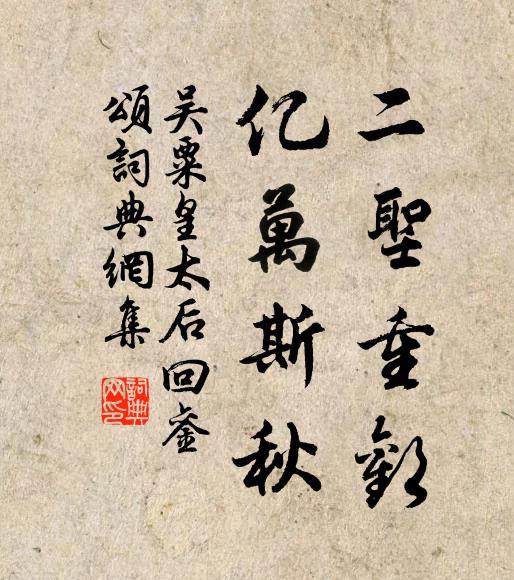 二聖重歡
亿萬斯秋
吴粟皇太后回銮
頌詞典網集
詞典
网印